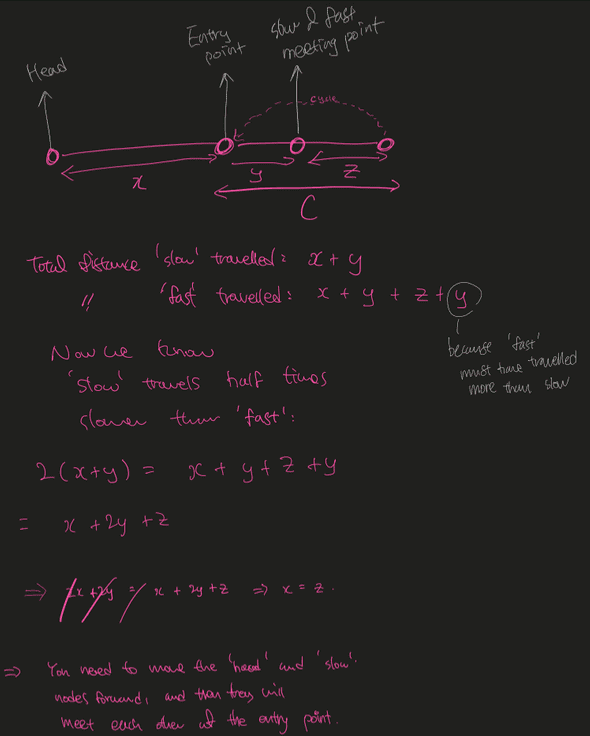 Entry
point
slow & fast
meeting point
Head
cycle
x
y
z
C
Total distance 'slow' travelled: x + y
" 'fast' travelled: x + y + z + y
because 'fast'
must have travelled
more than slow
Now we know
'slow' travels half times
slower than 'fast':
2(x+y) = x + y + z + y
= x + 2y + z
⇒ 2x + 2y = x + 2y + z ⇒ x = z.
⇒ You need to move the 'head' and 'slow'
nodes forward, and then they will
meet each other at the entry point.